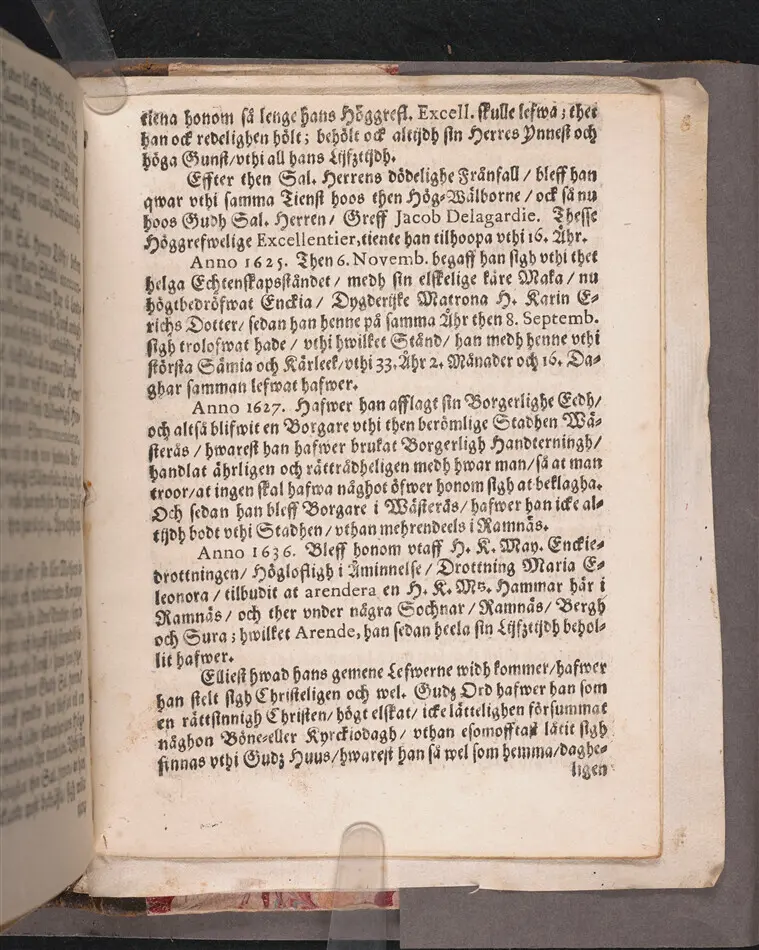 tiena honom så lenge hans Höggrefl. Excell. skulle lefwa; thet
han ock redelighen hölt; behölt ock altijdh sin Herres Ynnest och
höga Gunst/vthi all hans Lijfztijdh.
Effter then Sal. Herrens dödelighe Frånfall / bleff han
qwar vthi samma Tienst hoos then Hög-Wälborne / ock så nu
hoos Gudh Sal. Herren/ Greff Jacob Delagardie. Thesse
Höggrefwelige Excellentier, tiente han tilhoopa vthi 16. Åhr.
Anno 1625. Then 6. Novemb. begaff han sigh vthi thet
helga Echtenskapsståndet/ medh sin elskelige käre Maka / nu
högtbedröfwat Enckia / Dygderijke Matrona H. Karin E-
richs Dotter/ sedan han henne på samma Åhr then 8. Septemb.
sigh trolofwat hade / vthi hwilket Stånd/ han medh henne vthi
största Sämia och Kärleek/vthi 33. Åhr 2. Månader och 16. Da-
ghar samman lefwat hafwer.
Anno 1627. Hafwer han afflagt sin Borgerlighe Eedh/
och altså blifwit en Borgare vthi then berömlige Stadhen Wä-
sterås / hwarest han hafwer brukat Borgerligh Handterningh/
handlat ährligen och rättrådheligen medh hwar man/ så at man
troor/at ingen skal hafwa någhot öfwer honom sigh at beklagha.
Och sedan han bleff Borgare i Wästerås/ hafwer han icke al-
tijdh bodt vthi Stadhen / vthan mehrendeels i Ramnäs.
Anno 1636. Bleff honom vtaff H. K. May. Enckie-
drottningen/ Höglofligh i Åminnelse/ Drottning Maria E-
leonora / tilbudit at arendera en H. K. Mtz. Hammar här i
Ramnäs/ och ther vnder några Sochnar/ Ramnäs/ Bergh
och Sura; hwilket Arende, han sedan heela sin Lijfztijdh behol-
lit hafwer.
Elliest hwad hans gemene Lefwerne widh kommer/hafwer
han stelt sigh Christeligen och wel. Gudz Ord hafwer han som
en rättsinnigh Christen/ högt elskat/ icke lätteligen försummat
någhon Böne-eller Kyrckiodagh/ vthan esomofftast låtit sigh
finnas vthi Gudz Huus/hwarest han så wel som hemma/daghe-
ligen